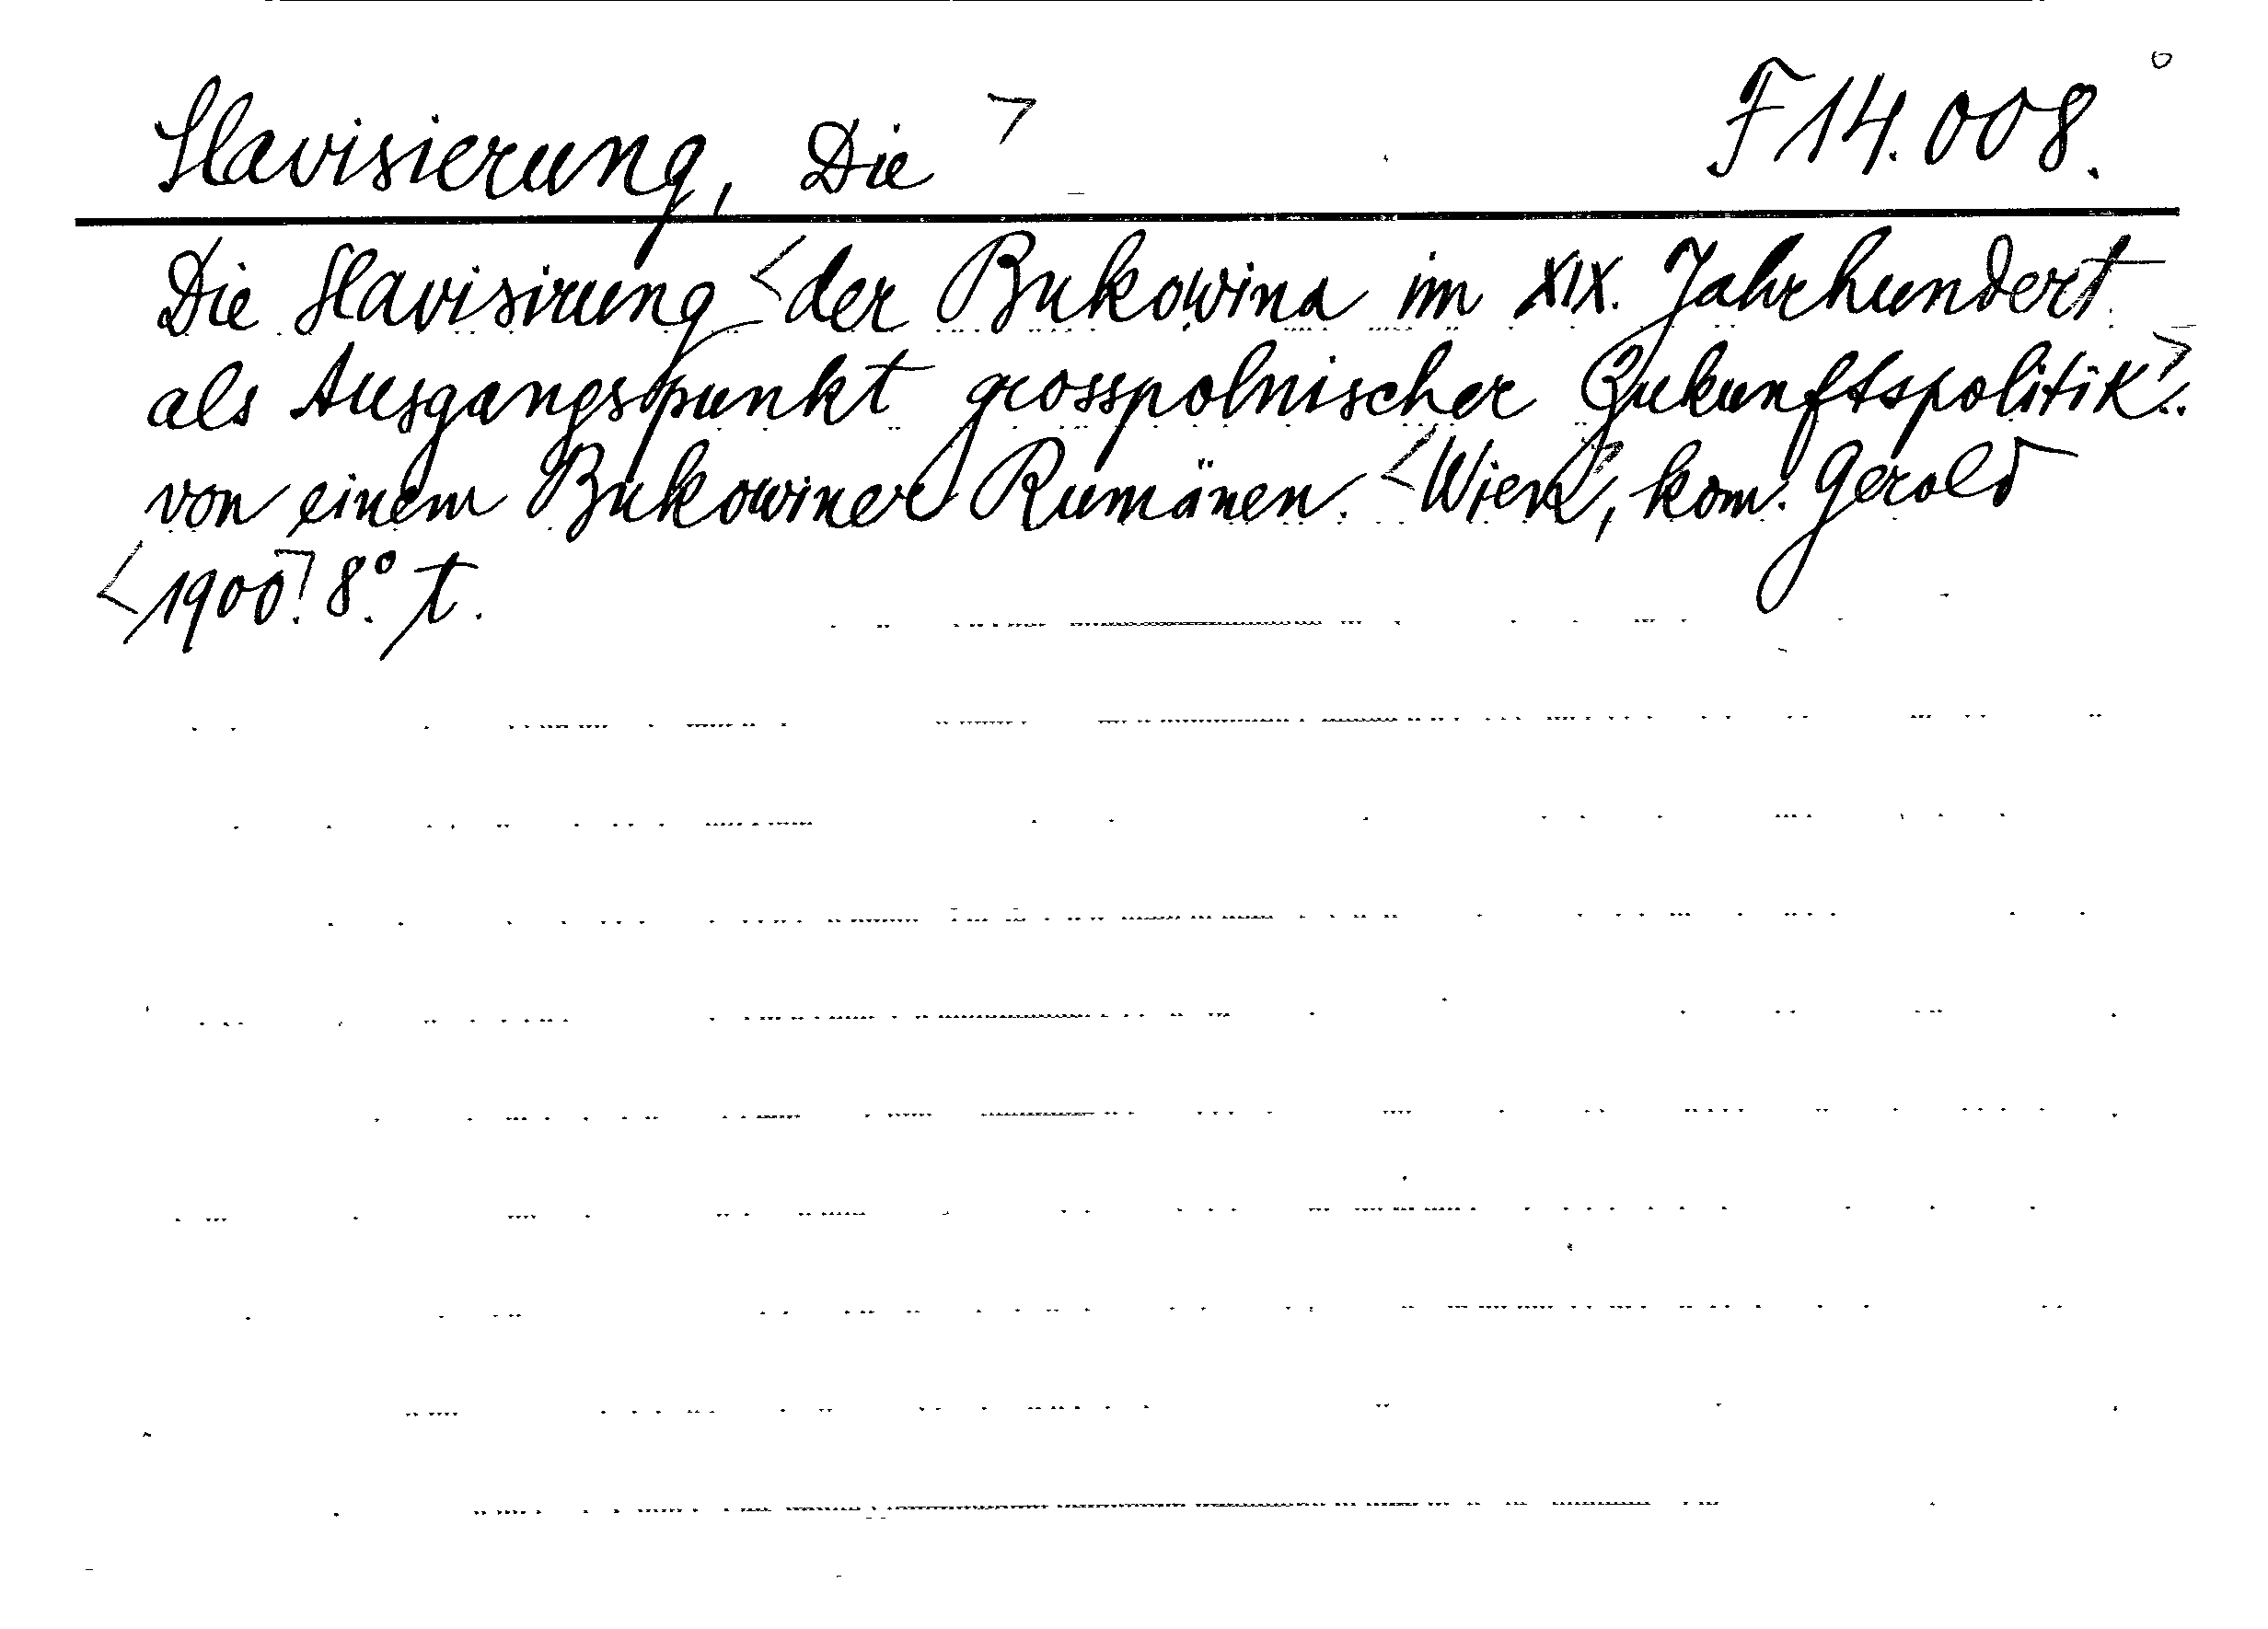 Slavisierung, Die F 14.008.
Die Slavisirung der Bukowina im XIX. Jahrhundert
als Ausgangspunkt grosspolnischer Zukunftspolitik.
von einem Bukowiner Rumänen. Wien, kom. Gerold
1900. 8°. t.